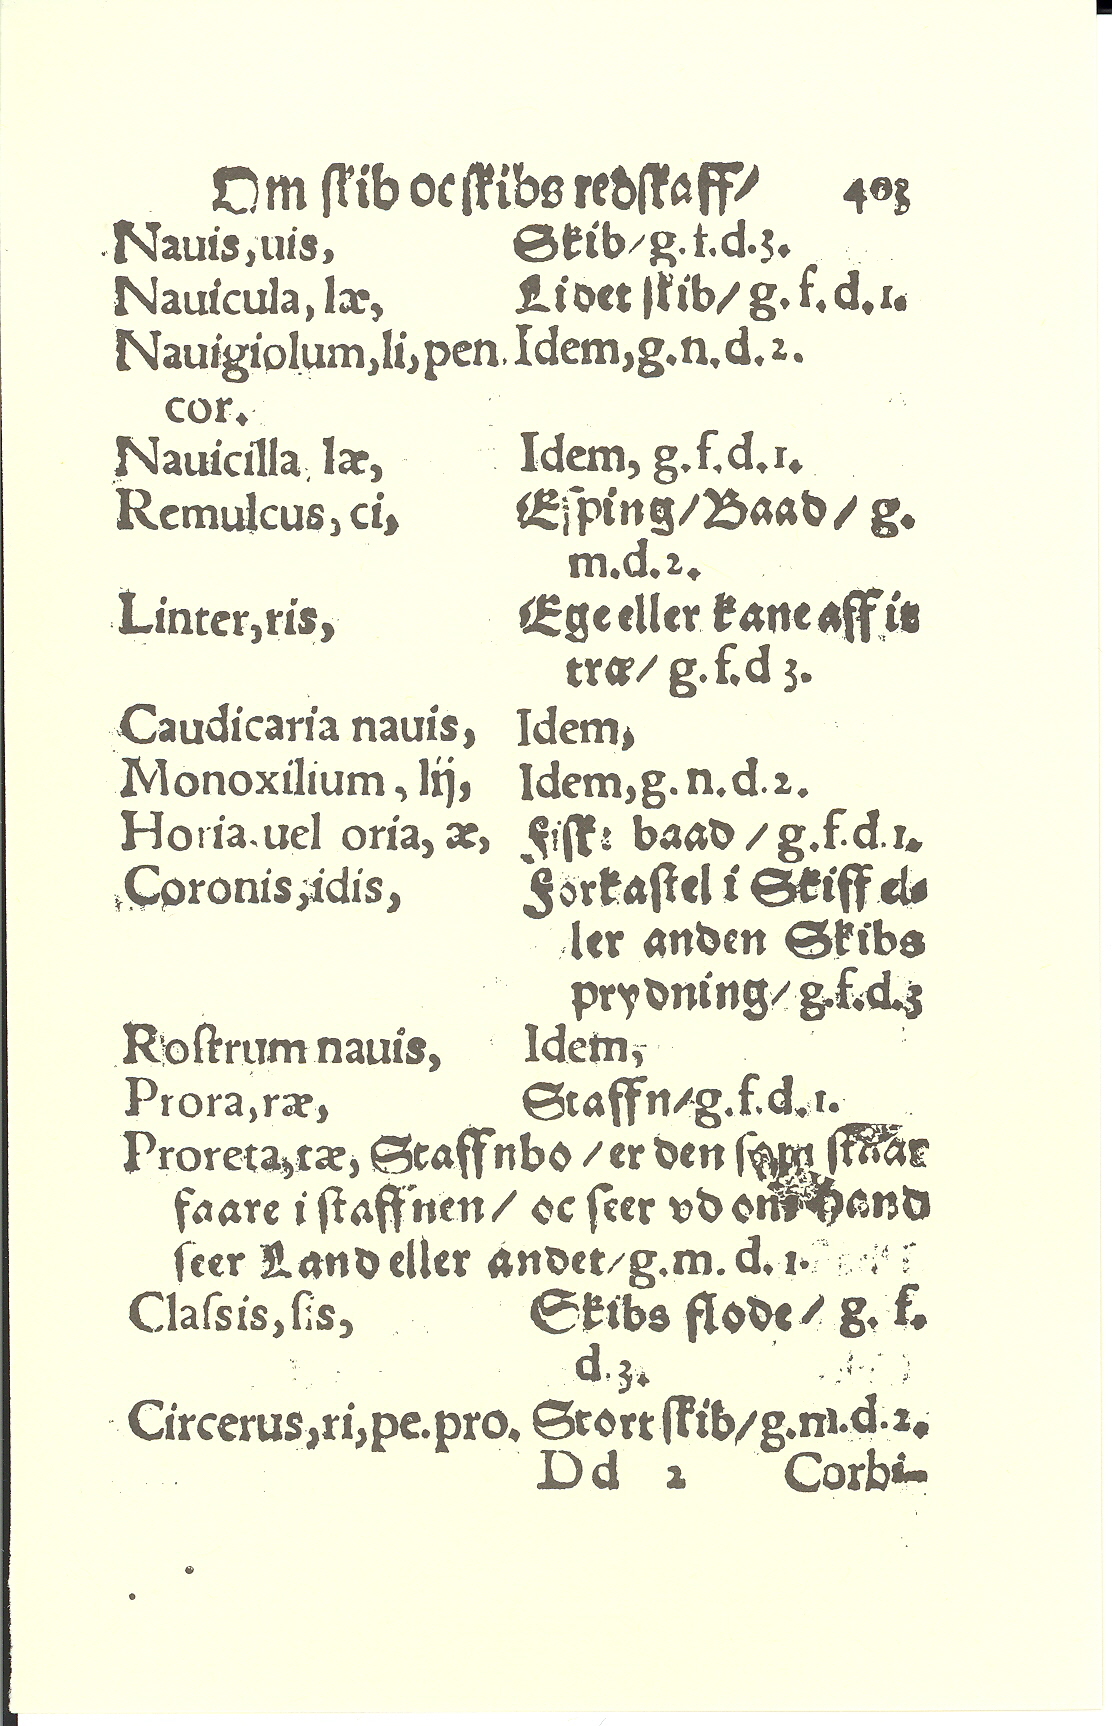 Om ſkib oc ſkibs redſkaff/ 403
Nauis, uis, Skib/ g. f. d. 3.
Nauicula, læ, Lidet ſkib/ g. f. d. 1.
Nauigiolum, li, pen. Idem, g. n. d. 2.
cor.
Nauicilla, læ, Idem, g. f. d. 1.
Remulcus, ci, Eſping/ Baad/ g.
m. d. 2.
Linter, ris, Ege eller kane aff it
træ/ g. f. d 3.
Caudicaria nauis, Idem,
Monoxilium, lij, Idem, g. n. d. 2.
Horia. uel oria, æ, Fiſke baad/ g. f. d. 1.
Coronis, idis, Forkaſtel i Skiff el-
ler anden Skibs
prydning/ g. f. d. 3
Roſtrum nauis, Idem,
Prora, ræ, Staffn/ g. f. d. 1.
Proreta, tæ, Staffnbo/ er den ſom ſtaar
faare i ſtaffnen/ oc ſeer vd om hand
ſeer Land eller andet/ g. m. d. 1.
Claſsis, ſis, Skibs flode/ g. f.
d. 3.
Circerus, ri, pe. pro. Stort ſkib/ g. m. d. 2.
Dd 2 Corbi-